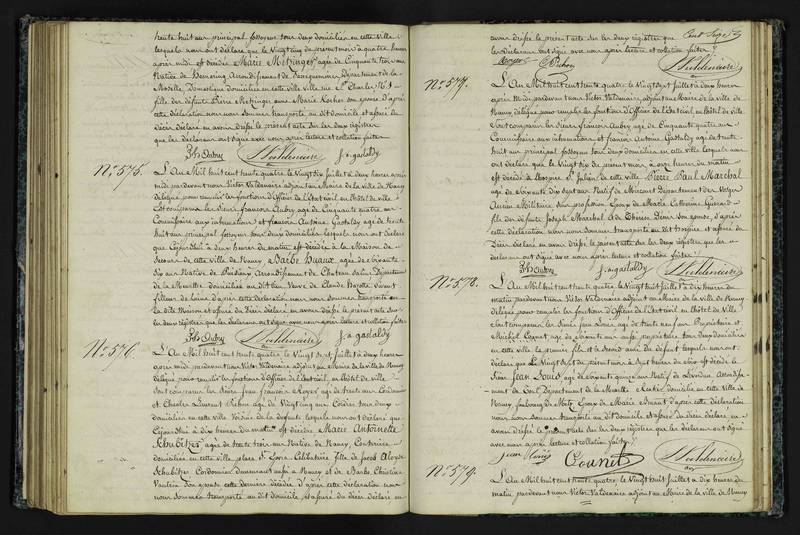 trente huit ans principal fossoyeur tous deux domiciliés en cette ville
lesquels nous ont déclaré que le Vingt cinq du présent mois à quatre heures
après midi est décédée Marie Metzinger agée de Cinquante trois ans
Native de Arrondissement de Sarreguemines Département de la
Moselle, Domestique domiciliée en cette ville rue St Charles No
fille des défunts Pierre Metzinger Anne Marie Kocher son épouse d'après
cette déclaration nous nous sommes transporté au dit domicile et assuré du
décès dont en avons dressé le présent acte sur les deux registres
que les déclarants ont signé avec nous après lecture et collation faites
Fh Aubry Valdenaire f. a gastaldy
No 575.
L'An Mil huit cent trente quatre le Vingt six Juillet à deux heures après
midi pardevant nous Victor Valdenaire adjoint au Maire de la ville de Nancy
délégué pour remplir les fonctions d'Officier de l'Etat civil en l'hôtel de Ville
Sont comparus les Sieurs françois Aubry agé de Cinquante quatre ans
Commissaire aux inhumations et françois Antoine Gastaldy agé de trente
huit ans principal fossoyeur tous deux domiciliés en cette ville lesquels nous ont déclaré
que Cejourd'hui à deux heures du matin est décédée à la Maison de
Secours de cette ville de Nancy Barbe agée de Soixante
dix ans Native de Arrondissement de Chateau Salins Département
de la Meurthe domiciliée au dit lieu Veuve de Claude vivant
fileur de laine d'après cette déclaration nous nous sommes transporté en
la dite Maison et assuré du décès dont en avons dressé le présent acte sur
les deux registres que les déclarants ont signé avec nous après lecture et collation faites
Fh Aubry Valdenaire f. a gastaldy
No 576.
L'An Mil huit cent trente quatre le Vingt sept Juillet à deux heures
après midi pardevant nous Victor Valdenaire adjoint au Maire de la ville de Nancy
délégué pour remplir les fonctions d'Officier de l'Etat civil en l'hôtel de ville
Sont comparus les Sieurs Jean françois Royer agé de trente ans Cordonnier
et Charles Pichon agé de Vingt cinq ans tous deux
domiciliés en cette ville Voisins de la défunte lesquels nous ont déclaré que
Cejourd'hui à dix heures du matin est décédée Marie Antoinette
Schubitzer agée de trente trois ans Native de Nancy, Couturière
domiciliée en cette ville place St Célibataire fille de Jacob Aloyse
Schubitzer Cordonnier demeurant aussi à Nancy et de Barbe Christine
son épouse cette dernière décédée d'après cette déclaration nous
nous sommes transporté au dit domicile et assuré du décès dont en
avons dressé le présent acte sur les deux registres que
les déclarants ont signé avec nous après lecture et collation faites
Royer Pichon Valdenaire
No 577.
L'An Mil huit cent trente quatre le Vingt sept Juillet à deux heures
après Midi pardevant nous Victor Valdenaire adjoint au Maire de la ville de
Nancy délégué pour remplir les fonctions d'Officier de l'Etat civil en l'hôtel de ville
Sont comparus les Sieurs françois Aubry agé de Cinquante quatre ans
Commissaire aux inhumations et francois Antoine Gastaldy agé de trente
huit ans principal fossoyeur tous deux domiciliés en cette ville lesquels nous
ont déclaré que le Vingt six du présent mois à onze heures du matin
est décédé à l'hospice St Julien de cette ville Pierre Paul Marchal
agé de soixante dix sept ans Natif de Mirecourt Département des Vosges
Ancien Militaire sans profession Epoux de Marie Catherine
fils des défunts Joseph Marchal et Thérèse son épouse, d'après
cette déclaration nous nous sommes transporté au dit hospice et assuré du
Décès dont en avons dressé le présent acte sur les deux registres que les
déclarants ont signé avec nous après lecture et collation faites
Fh Aubry f. a gastaldy Valdenaire
No 578.
L'An Mil huit cent trente quatre le Vingt huit Juillet à dix heures du
matin pardevant nous Victor Valdenaire adjoint au Maire de la ville de Nancy
délégué pour remplir les fonctions d'Officier de l'Etat civil en l'hôtel de Ville
Sont comparus les Sieurs Jean agé de trente neuf ans Propriétaire et
Michel Cognet agé de soixante ans aussi propriétaire tous deux domiciliés
en cette ville le premier fils et le second ami du défunt lesquels nous ont
déclaré que le Vingt sept du présent mois à huit heures du soir est décédé le
Sieur Jean agé de soixante quinze ans Natif de Arrondisse-
ment de Toul Département de la Meurthe Rentier domicilié en cette Ville de
Nancy faubourg de Metz Epoux de Marie d'après cette déclaration
nous nous sommes transporté au dit domicile et assuré du décès dont en
avons dressé le présent acte sur les deux registres que les déclarants ont signé
avec nous après lecture et collation faites
Valdenaire
No 579.
L'An Mil huit cent trente quatre le Vingt huit Juillet à dix heures du
matin pardevant nous Victor Valdenaire adjoint au Maire de la ville de Nancy